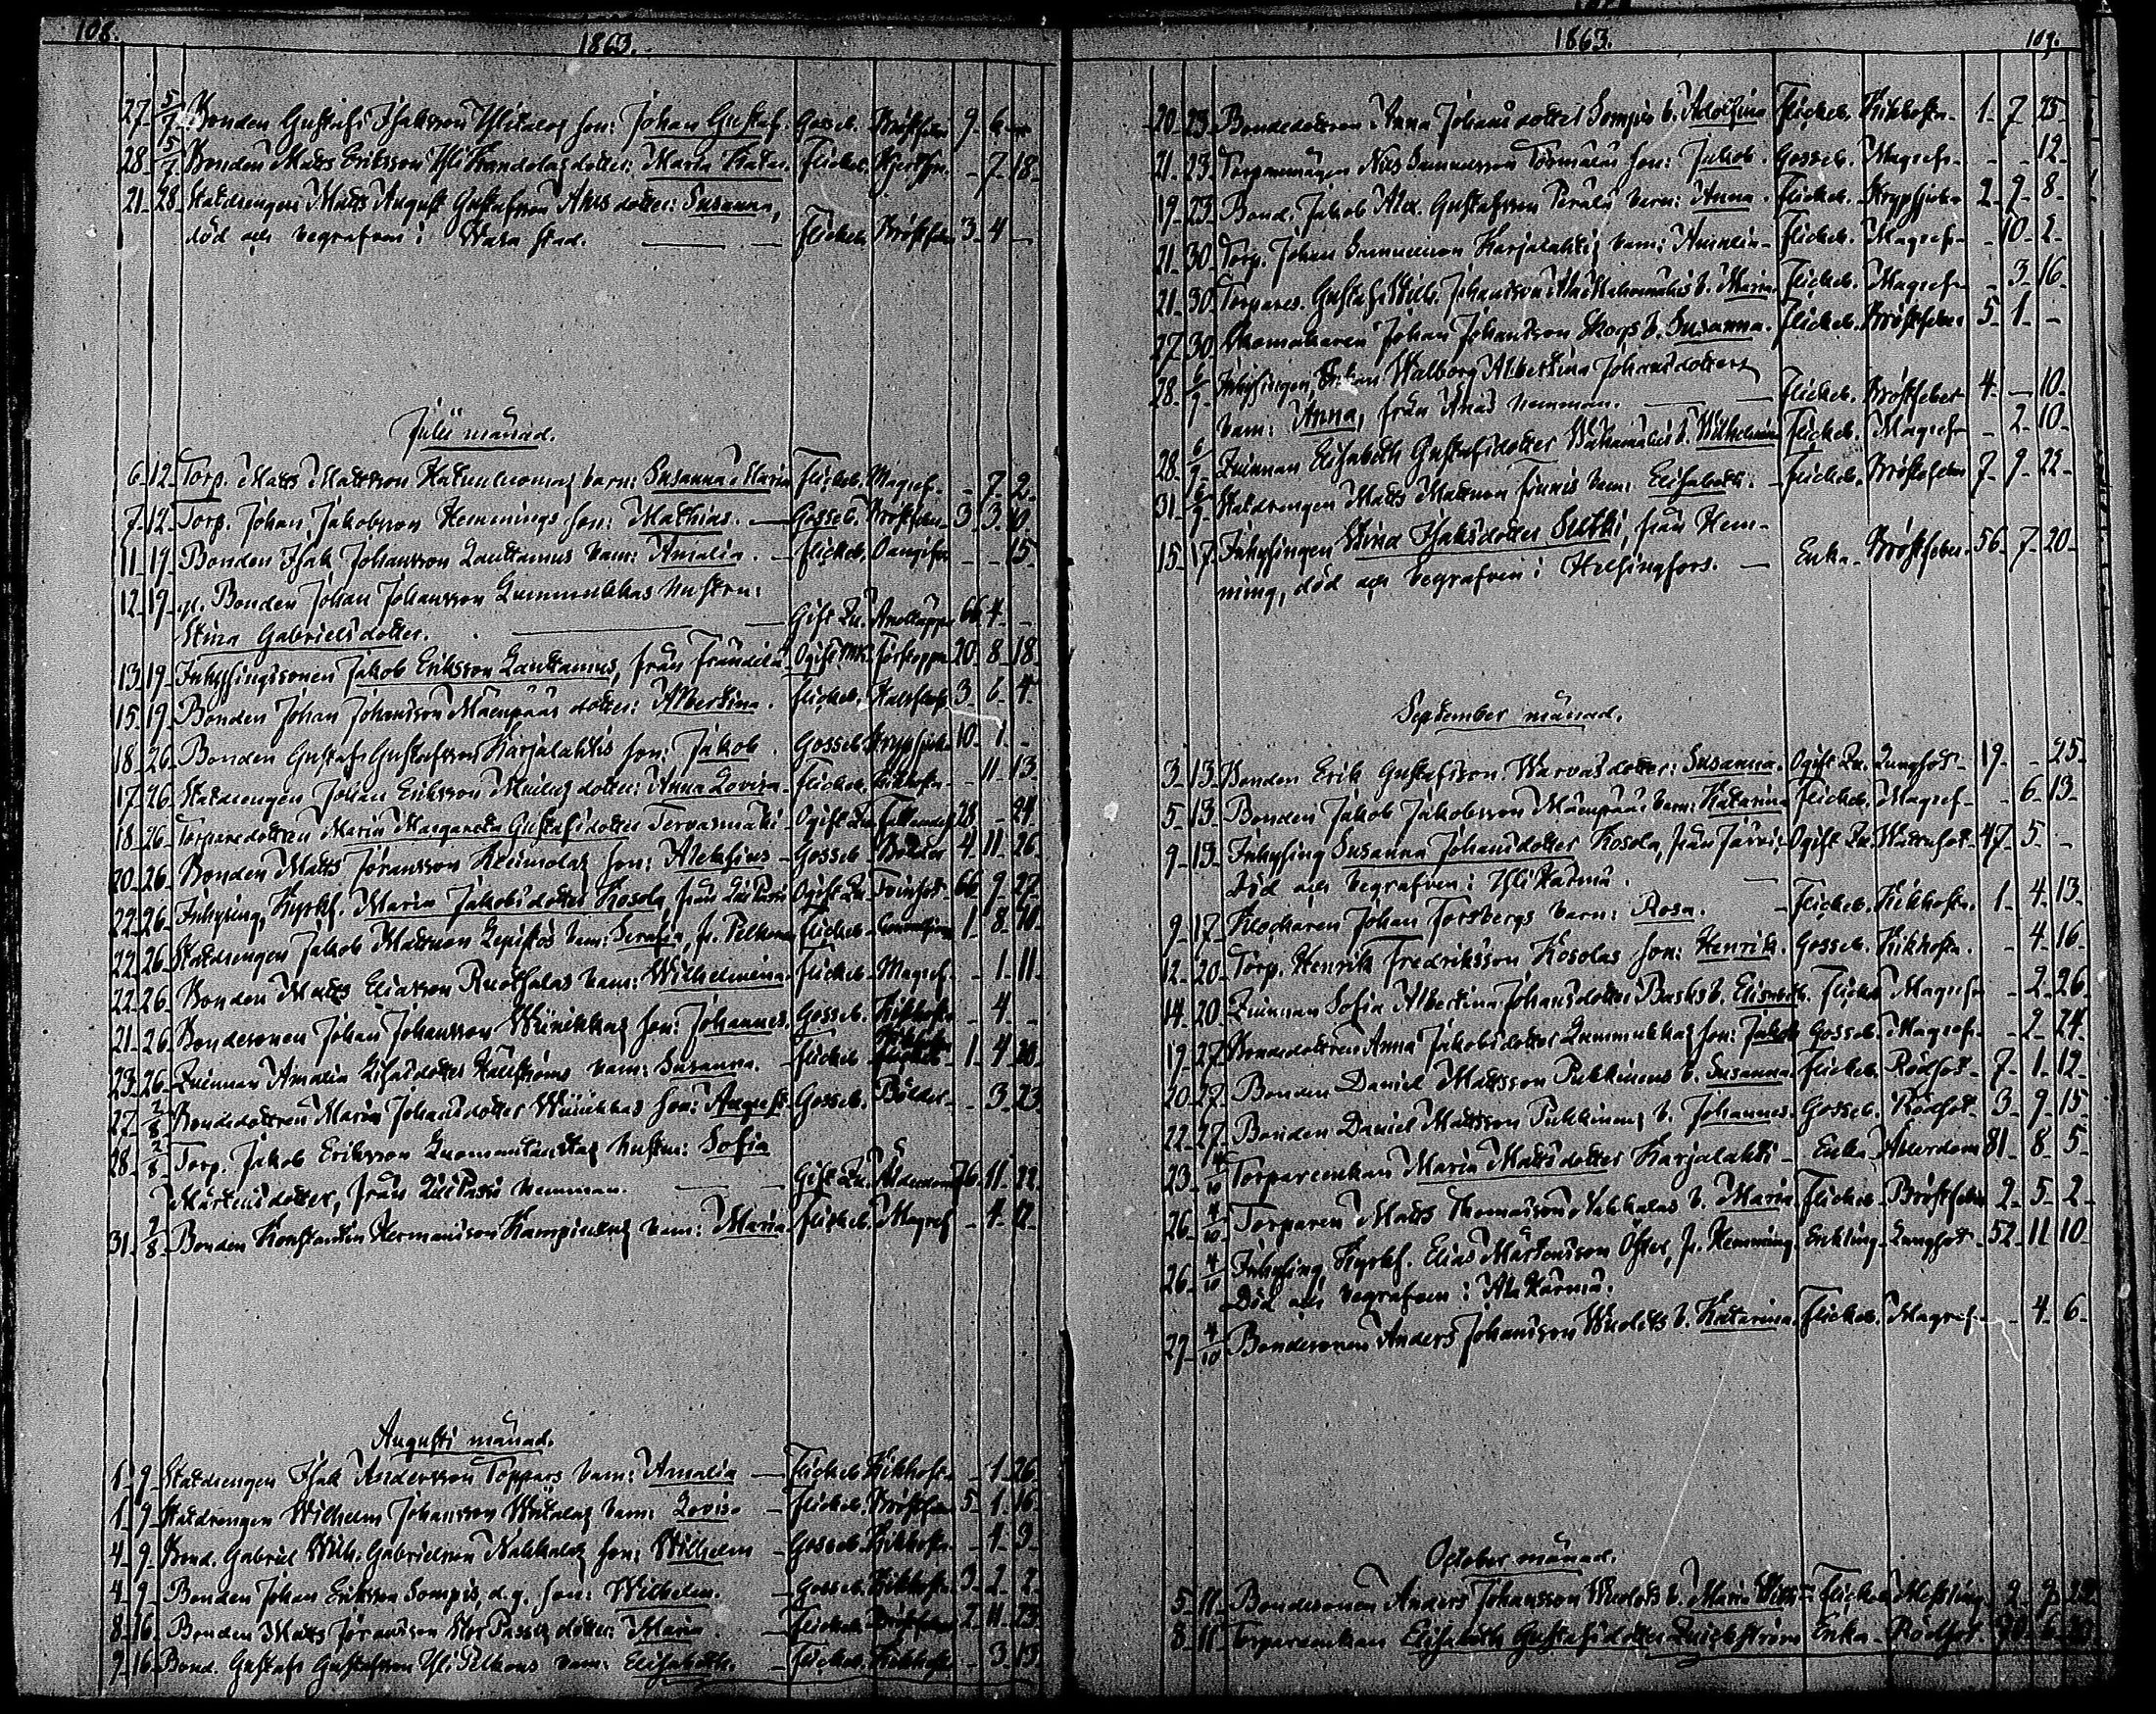 108.
1863.
27. 5/7 Bonden Gustaf Isaksson Ylitalos son: Johan Gustaf. Gosseb. Bröstfeber 9. 6.
28. 5/7 Bonden Matts Eriksson dotter: Maria Flickeb. - 7. 18.
21. 28. Statdrengen Matts August Gustafsson dotter: Susanna,
död och begrafven i Wasa stad. Flickeb. Bröstfeber 3. 4 -
Julii månad.
6. 12. Torp. Matts Mattsson barn: Susanna Maria Flickeb. Magref. - 7. 2.
7. 12. Torp. Johan Jakobsson Hemmings son: Mathias. Gosseb. Bröstfeber 3. 3. 10
11. 19. Bonden Isak Johansson Lauttamus barn: Amalia. Flickeb. - - 15.
12. 19. gl. Bonden Johan Johansson Lummukkas hustru:
Stina Gabrielsdotter. Gift Qu. Andtäppa 66 4. -
13. 19. Inhysingssonen Jakob Eriksson Lauttamus, från Frändilä Ogift Mk. 20. 8. 18.
15. 19. Bonden Johan Johansson Mäenpääs dotter: Albertina. Flickeb. 3. 6. 4.
18. 26. Bonden Gustaf Gustafsson Karjalahtis son: Jakob. Gosseb. 10. 1. -
17. 26. Statdrengen Johan Eriksson dotter: Anna Lovisa. Flickeb. Kikhosta - 11. 13.
18. 26. Torparedottren Maria Margareta Gustafsdotter Tervasmäki Ogift Qu. Fallandes. 28 - 24.
20. 26. Bonden Matts Göransson Kleimolas son: Aleksius Gosseb. Bölder 4. 11. 26.
22. 26. Inhysing, Kyrkf. Maria Jakobsdotter Kosola från Lili Passi Ogift Qu. 66. 9. 27.
22. 26. Statdrengen Jakob Mattsson Lepistös barn: Serafia, fr. Pelkone Flickeb. 1. 8. 10.
22. 26. Bonden Matts Eliasson Ruothalas barn: Wilhelmina Flickeb. Magref. - 1. 11.
21. 26. Bondesonen Johan Johansson Wiinikkas son: Johannes. Gosseb. Kikhosta - 4. -
23. 26. Quinnan Amalia Källströms barn: Susanna. Flickeb. Kikhosta 1. 4. 20.
27. 2/8 Bondedottren Maria Johansdotter Wiinikkas son: August. Gosseb. Bölder. - 3. 23.
28. 2/8 Torp. Jakob Eriksson hustru: Sofia
Mårtensdotter, från Lill Passi hemman. Gift Qu. Ålderdom 76. 11. 22.
31. 2/8 Bonden Konstantin Hermansson Kampinens barn: Maria Flickeb. Magref - 4. 12.
Augusti månad.
1. 9. Statdrengen Isak Andersson Toppars barn: Amalia Flickeb. Kikhosta - 1. 26.
1. 9. Statdrengen Wilhelm Johansson Witalas barn: Lovisa Flickeb. Bröstfeber 5. 1. 16.
4. 9. Bond. Gabriel Wilh. Gabrielsson Nahkalas son: Wilhelm Gosseb. Kikhosta - 1. 9.
4. 9. Bonden Johan Eriksson Sompis, d.y. son: Wilhelm. Gosseb. Kikhosta 3. 2. 2.
8. 16. Bonden Matts Göransson Stor Passis dotter: Maria. Flickeb. Bröstfeber 2. 11. 23.
9. 16. Bond. Gustaf Gustafsson Yli Pelkons barn: Elisabeth. Flickeb. Kikhosta - 3. 13.
1863.
109.
20. 23. Bondedottren Anna Johansdotter Sompis b. Adolfina Flickeb. Kikhosta. 1. 7. 25.
21. 23. Torparemågen Nils Samuelsson Törmäläs son: Jakob. Gosseb. Magref. - - 12.
19. 23. Bond. Jakob Alex. Gustafsson Peräläs barn: Anna. Flickeb. 2. 9. 8.
21. 30. Torp. Johan Samuelsson Karjalahtis barn: Amalia Flickeb. Magref. - 10. 2.
21. 30. Torpares. Gustaf Wilh. Johansson b. Maria. Flickeb. Magref. - 3. 16.
27. 30. Skomakaren Johan Johansson Skogs b. Susanna. Flickeb. Bröstfeber 5. 1. -
28. 6/9 Inhysingen, Enkan Walborg Albertina Johansdotters
barn: Anna, från hemman. Flickeb. Bröstfeber 4. - 10.
28. 6/9 Quinnan Elisabeth Gustafsdotter b. Wilhelmina Flickeb. Magref - 2. 10.
31. 6/9 Statdrengen Matts Mattsson Finnis barn: Elisabeth. Flickeb. Bröstfeber 7. 9. 22.
15. 17. Inhysingen Stina Isaksdotter Sutki, från Hem-
ming, död och begrafven i Helsingfors. Enka. Bröstfeber. 56. 7. 20.
September månad.
3. 13. Bonden Erik Gustafsson Warvas dotter: Susanna. Ogift Qu. Lungsot. 19. - 25.
5. 13. Bonden Jakob Jakobsson Mäenpääs barn: Katarina Flickeb. Magref. - 6. 13.
9. 13. Inhysing Susanna Johansdotter Kosola, från Järvi. Ogift Qu. Wattusot. 47. 5. -
Död och begrafven i Yli Härmä.
9. 17. Klockaren Johan Forsbergs barn: Rosa. Flickeb. Kikhosta. 1. 4. 13.
12. 20. Torp. Henrik Fredriksson Kosolas son: Henrik. Gosseb. Kikhosta. - 4. 16.
14. 20. Quinnan Sofia Albertina Johansdotter Backs b. Elisabeth. Flickeb. Magref. - 2. 26.
19. 27. Bondedottren Anna Jakobsdotter Lummukkas son: Jakob Gosseb. Magref. - 2. 24.
20. 27. Bonden Daniel Mattsson Puhkinens b. Susanna. Flickeb. Rödsot. 7. 1. 12.
22. 27. Bonden Daniel Mattsson Puhkinens b. Johannes. Gosseb. Rödsot. 3. 9. 15.
23. 4/10 Torpareenkan Maria Mattsdotter Karjalahti Enka. Ålderdom 81. 8. 5.
26. 4/10 Torparen Matts Thomasson Nahkalas b. Maria Flickeb. Bröstfeber 2. 5. 2.
26. 4/10 Inhysing, Kyrkf. Elias Mårtensson Öster, fr. Hemming. Enkling. Lungsot. 52. 11. 10.
Död och begrafven i Ala Härmä.
29. 4/10 Bondesonen Anders Johansson Wuolets b. Katarina Flickeb. Magref. - 4. 6.
October månad.
5. 11. Bondesonen Anders Johansson Wuolets b. Maria Flickeb. Messling. 2.
8. 11. Torpareenkan Elisabeth Gustafsdotter Quickström Enka. Rödsot. 70. 6.